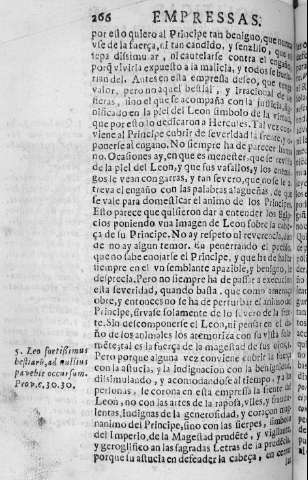 266 EMPRESSAS.
por esto quiero al Principe tan benigno, que nunca
vse de la fuerça, ni tan candido, y senzillo, que ni
sepa dissimular, ni cautelarse contra el engaño,
porq̃ viviria expuesto a la malicia, y todos se burla-
rian del. Antes en esta empressa deseo, que tenga
valor, pero no aquel bestial, y irracional de las
fieras, sino el que se acompaña con la justicia, sig-
nificado en la piel del Leon simbolo de la virtud,
que por esto lo dedicaron a Hercules. Tal vez con-
viene al Principe cubrir de severidad la frente, y o-
ponerse al engaño. No siempre ha de parecer huma
no. Ocasiones ay, en que es menester, que se revista
de la piel del Leon, y que sus vasallos, y los enemi-
gos le vean con garras, y tan severo, que no se le a-
treva el engaño con las palabras alagueñas, de que
se vale para domesticar el animo de los Principes.
Esto parece que quisieron dar a entender los Egip-
cios poniendo vna Imagen de Leon sobre la cabe-
ça de su Principe. No ay respeto ni reverencia, don
de no ay algun temor. En penetrando el pueblo,
que no sabe enojarse el Principe, y que ha de hallar
siempre en el vn semblante apazible, y benigno, le
desprecia. Pero no siempre ha de passar a execucion
esta severidad, quando basta, que como amenaza
obre, y entonces no se ha de perturbar el animo del
Principe, sirvase solamente de lo severo de la fren-
te. Sin descomponerse el Leon, ni pensar en el da-
ño de los animales los atemoriza con su vista sola-
mẽte; tal es la fuerça de la magestad de sus ojos.
Pero porque alguna vez conviene cubrir la fuerça
con la astucia, y la indignacion con la benignidad,
dissimulando, y acomodandose al tiempo, y a las
personas, se corona en esta empressa la frente del
Leon, no con las artes de la raposa, viles, y fraudu-
lentas, indignas de la generosidad, y coraçon mag-
nanimo del Principe, sino con las sierpes, simbolo
del Imperio, de la Magestad prudẽte, y vigilante,
y geroglifico en las sagradas Letras de la prudẽcia,
porque su astucia en defender la cabeça, en cerrar
5. Leo fortissimus
bestiarũ, ad nullius
pavebit occursum.
Prov. c. 30. 30.